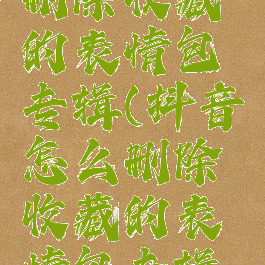 删除收藏
的表情包
专辑(抖音
怎么删除
收藏的表
情包专辑